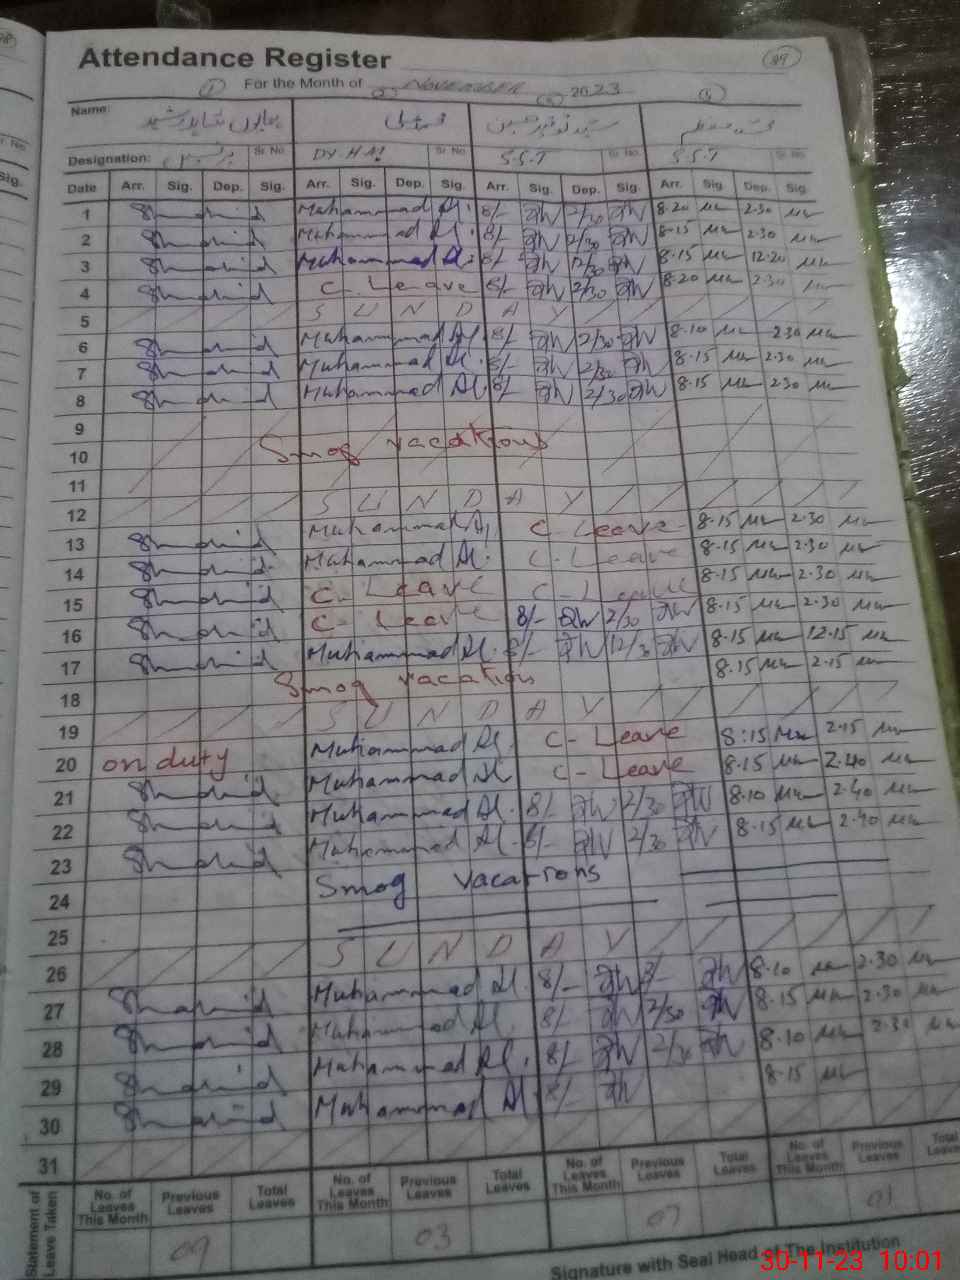 29
Attendance Register
① For the Month of ② NOVEMBER ③ 2023 ④
Name: ہمایوں شاہد رشید محمد علی سید توقیر حسین
Designation: Sr. No. DY. HM Sr. No. S.S.T Sr. No. S.S.T Sr. No.
Date Arr. Sig. Dep. Sig. Arr. Sig. Dep. Sig. Arr. Sig. Dep. Sig. Arr. Sig. Dep. Sig.
1 Shahid Muhammad Al. 8/- 2/30 8.20 2.30
2 Shahid Muhammad Al. 8/- 2/30 8.15 2.30
3 Shahid Muhammad Al. 8/- 12/30 8.15 12.20
4 Shahid C. Leave 8/- 2/30 8.20 2.30
5 S U N D A Y
6 Shahid Muhammad Al. 8/- 2/30 8.10 2.30
7 Shahid Muhammad Al. 8/- 2/30 8.15 2.30
8 Shahid Muhammad Al. 8/- 2/30 8.15 2.30
9
10 Smog vacations
11
12 S U N D A Y
13 Shahid Muhammad Al. C-Leave 8.15 2.30
14 Shahid Muhammad Al. C-Leave 8.15 2.30
15 Shahid C. Leave C-Leave 8.15 2.30
16 Shahid C. Leave 8/- 2/30 8.15 2.30
17 Shahid Muhammad Al. 8/- 12/30 8.15 12.15
18 Smog vacations 8.15 2.15
19 S U N D A Y
20 on duty Muhammad Al. C-Leave 8:15 2.15
21 Shahid Muhammad Al C-Leave 8.15 2.40
22 Shahid Muhammad Al. 8/- 2/30 8.10 2.40
23 Shahid Muhammad Al. 8/- 2/30 8.15 2.40
24 Smog vacations
25
26 S U N D A Y
27 Shahid Muhammad Al. 8/- 8.10 2.30
28 Shahid Muhammad Al. 8/- 2/30 8.15 2.30
29 Shahid Muhammad Al. 8/- 2/30 8.10 2.31
30 Shahid Muhammad Al. 8/- 8.15
31
Statement of Leave Taken No. of Leaves This Month Previous Leaves Total Leaves No. of Leaves This Month Previous Leaves Total Leaves No. of Leaves This Month Previous Leaves Total Leaves No. of Leaves This Month Previous Leaves Total Leaves
09 03 07 01
Signature with Seal Head of The Institution
30-11-23 10:01